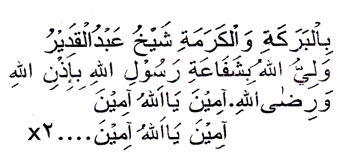 بِالْبَرَكَةِ وَالْكَرَمَةِ شَيْخُ عَبْدُالْقَدِيْرُ
وَلِيُّ اللهُ بِشَفَاعَةِ رَسُوْلِ اللهِ بِاِذْنِ اللهِ
وَرِضٰى اللهِ. آمِيْنَ يَااَللهُ آمِيْنَ
آمِيْنَ يَااَللهُ آمِيْنَ....x٢